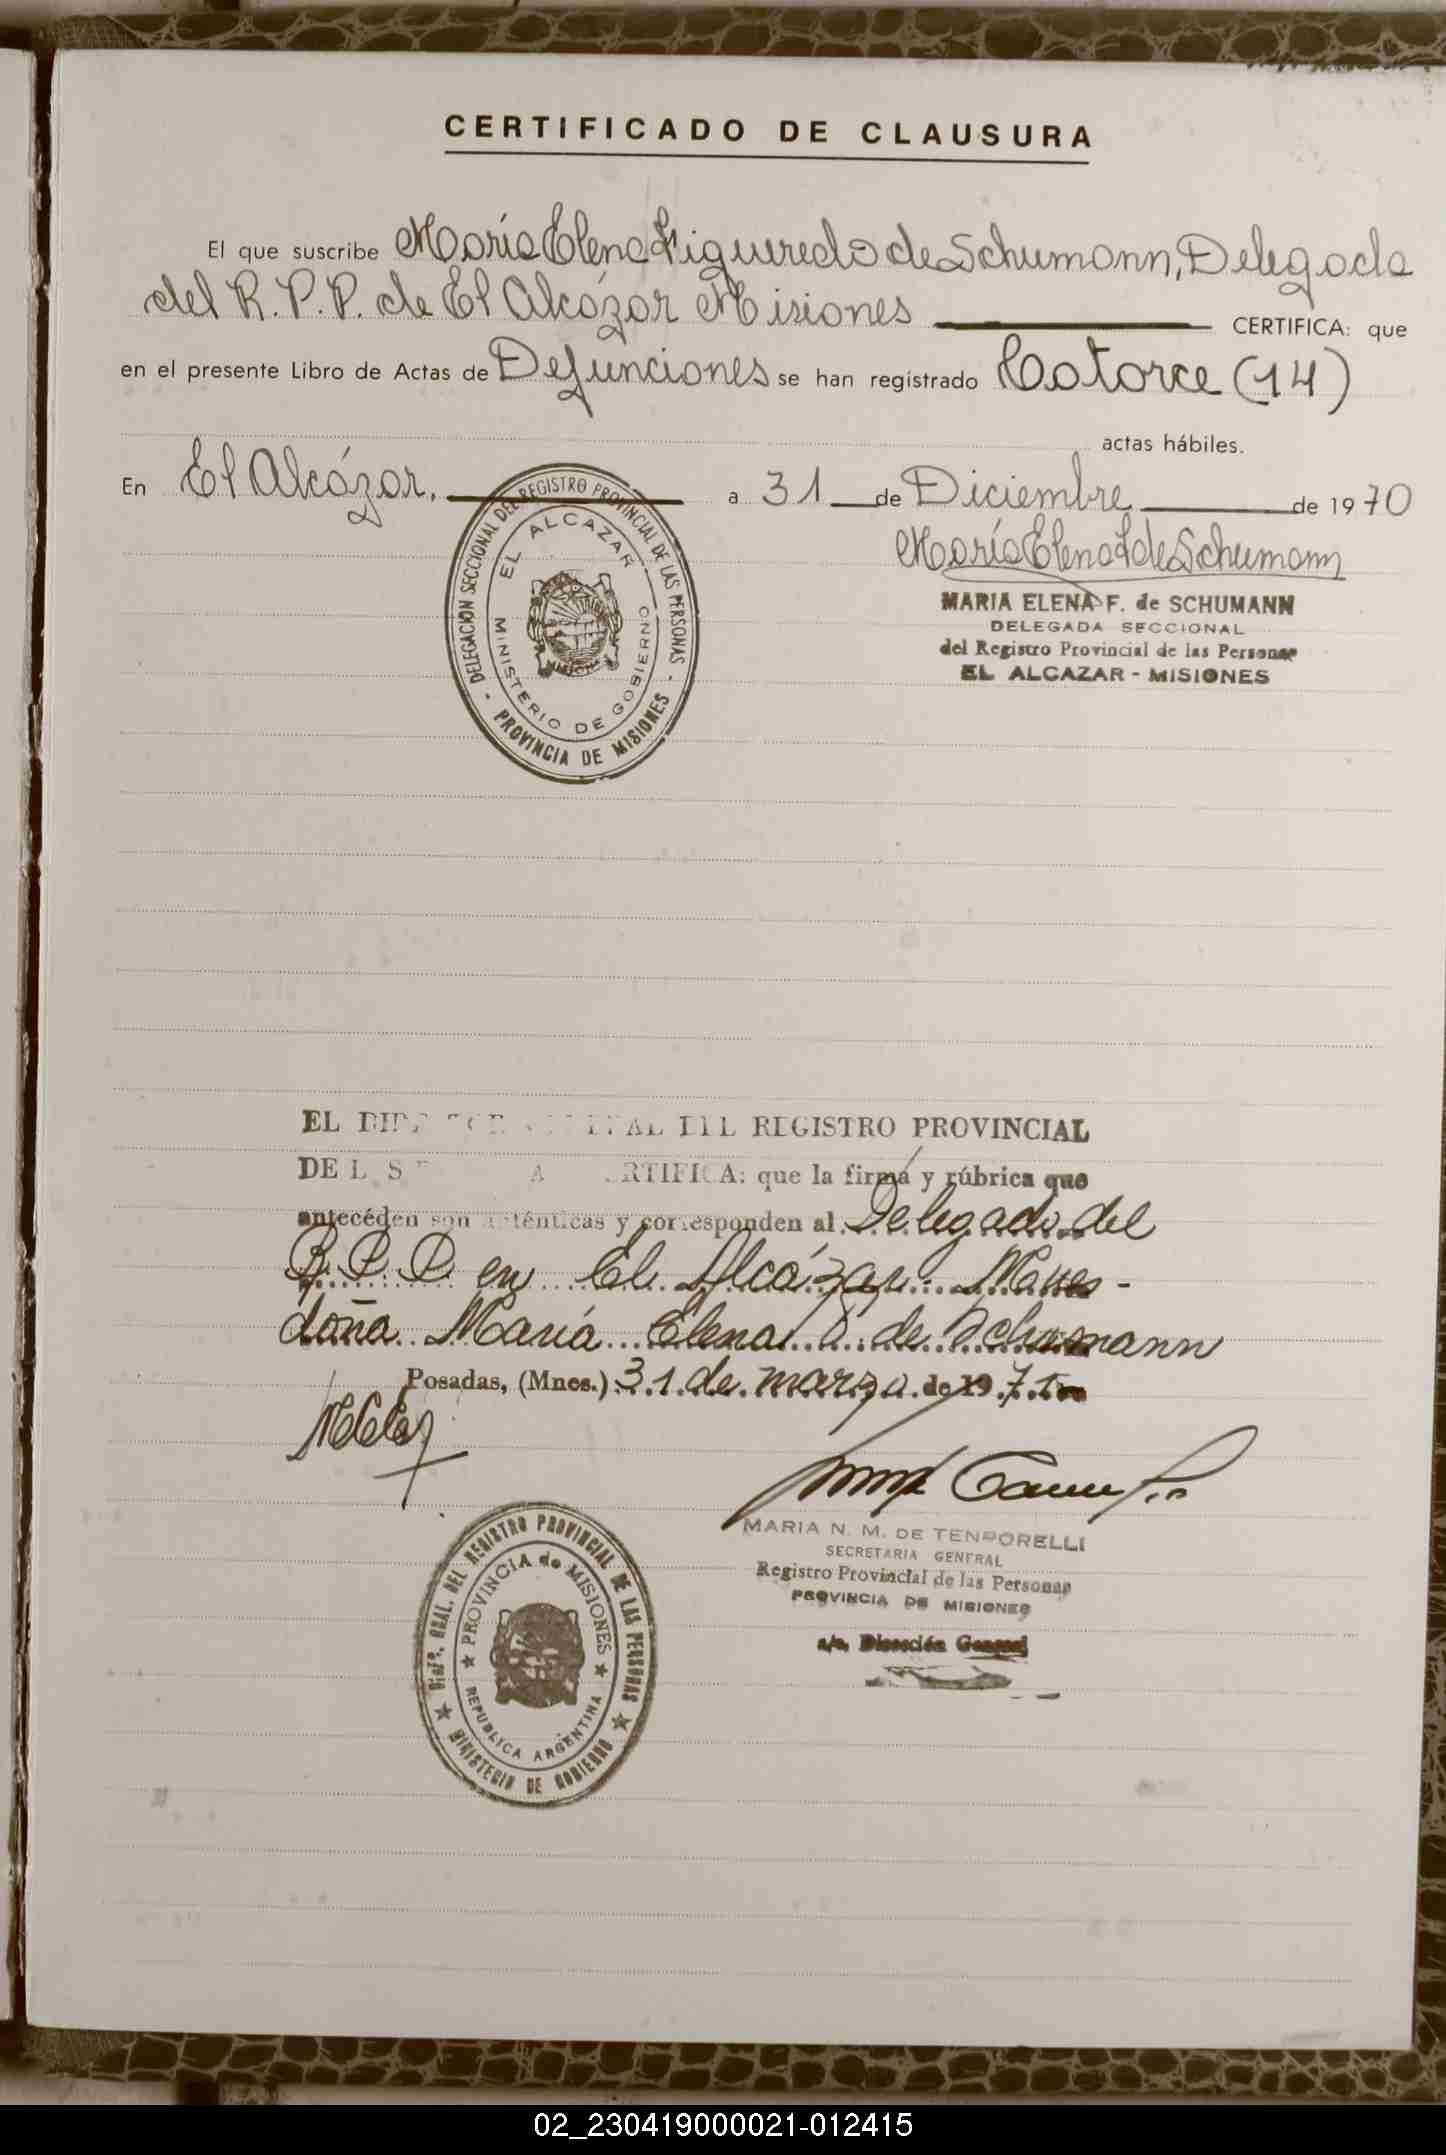 CERTIFICADO DE CLAUSURA
El que suscribe María Elena Figueredo de Schumann, Delegada
del R.P.P. de El Alcázar Misiones CERTIFICA: que
en el presente Libro de Actas de Defunciones se han registrado Catorce (14)
actas hábiles.
En El Alcázar, a 31 de Diciembre de 1970
María Elena F de Schumann
MARIA ELENA F. de SCHUMANN
DELEGADA SECCIONAL
del Registro Provincial de las Personas
EL ALCAZAR - MISIONES
DELEGACION SECCIONAL DEL REGISTRO PROVINCIAL DE LAS PERSONAS
- PROVINCIA DE MISIONES -
EL ALCAZAR
MINISTERIO DE GOBIERNO
EL REGISTRO PROVINCIAL
que la firma y rúbrica que
antecéden son auténticas y corresponden al Delegado del
R. P. P. en El Alcázar
doña María Elena de Schumann
Posadas, (Mnes.) 31 de marzo de 1971
MARIA N. M. DE TEMPORELLI
SECRETARIA GENERAL
Registro Provincial de las Personas
PROVINCIA DE MISIONES
a/c. Dirección General
DIREC. GRAL. DEL REGISTRO PROVINCIAL DE LAS PERSONAS
MINISTERIO DE GOBIERNO
PROVINCIA de MISIONES
REPUBLICA ARGENTINA
02_230419000021-012415